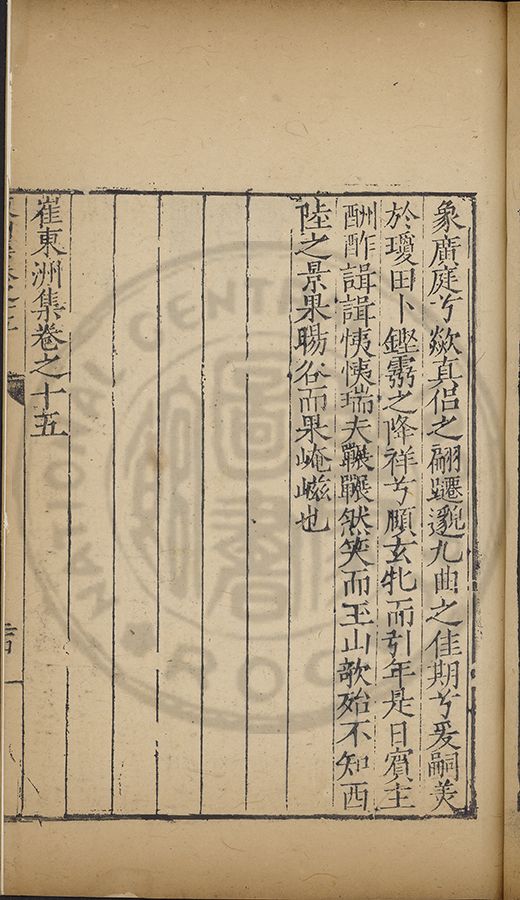 象廣庭兮歘真侣之翩躚邈九曲之佳期兮爰嗣美
於瓊田卜鏗霱之降祥兮願玄牝而引年是日賓主
酬酢諿諿怏怏瑞夫囅囅然笑而玉山欹殆不知西
陸之景果暘谷而果崦嵫也
崔東洲集卷之十五